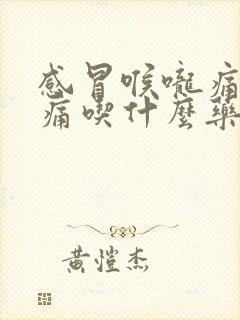 感冒喉嚨痛
痛喫什麼藥
黄愷杰